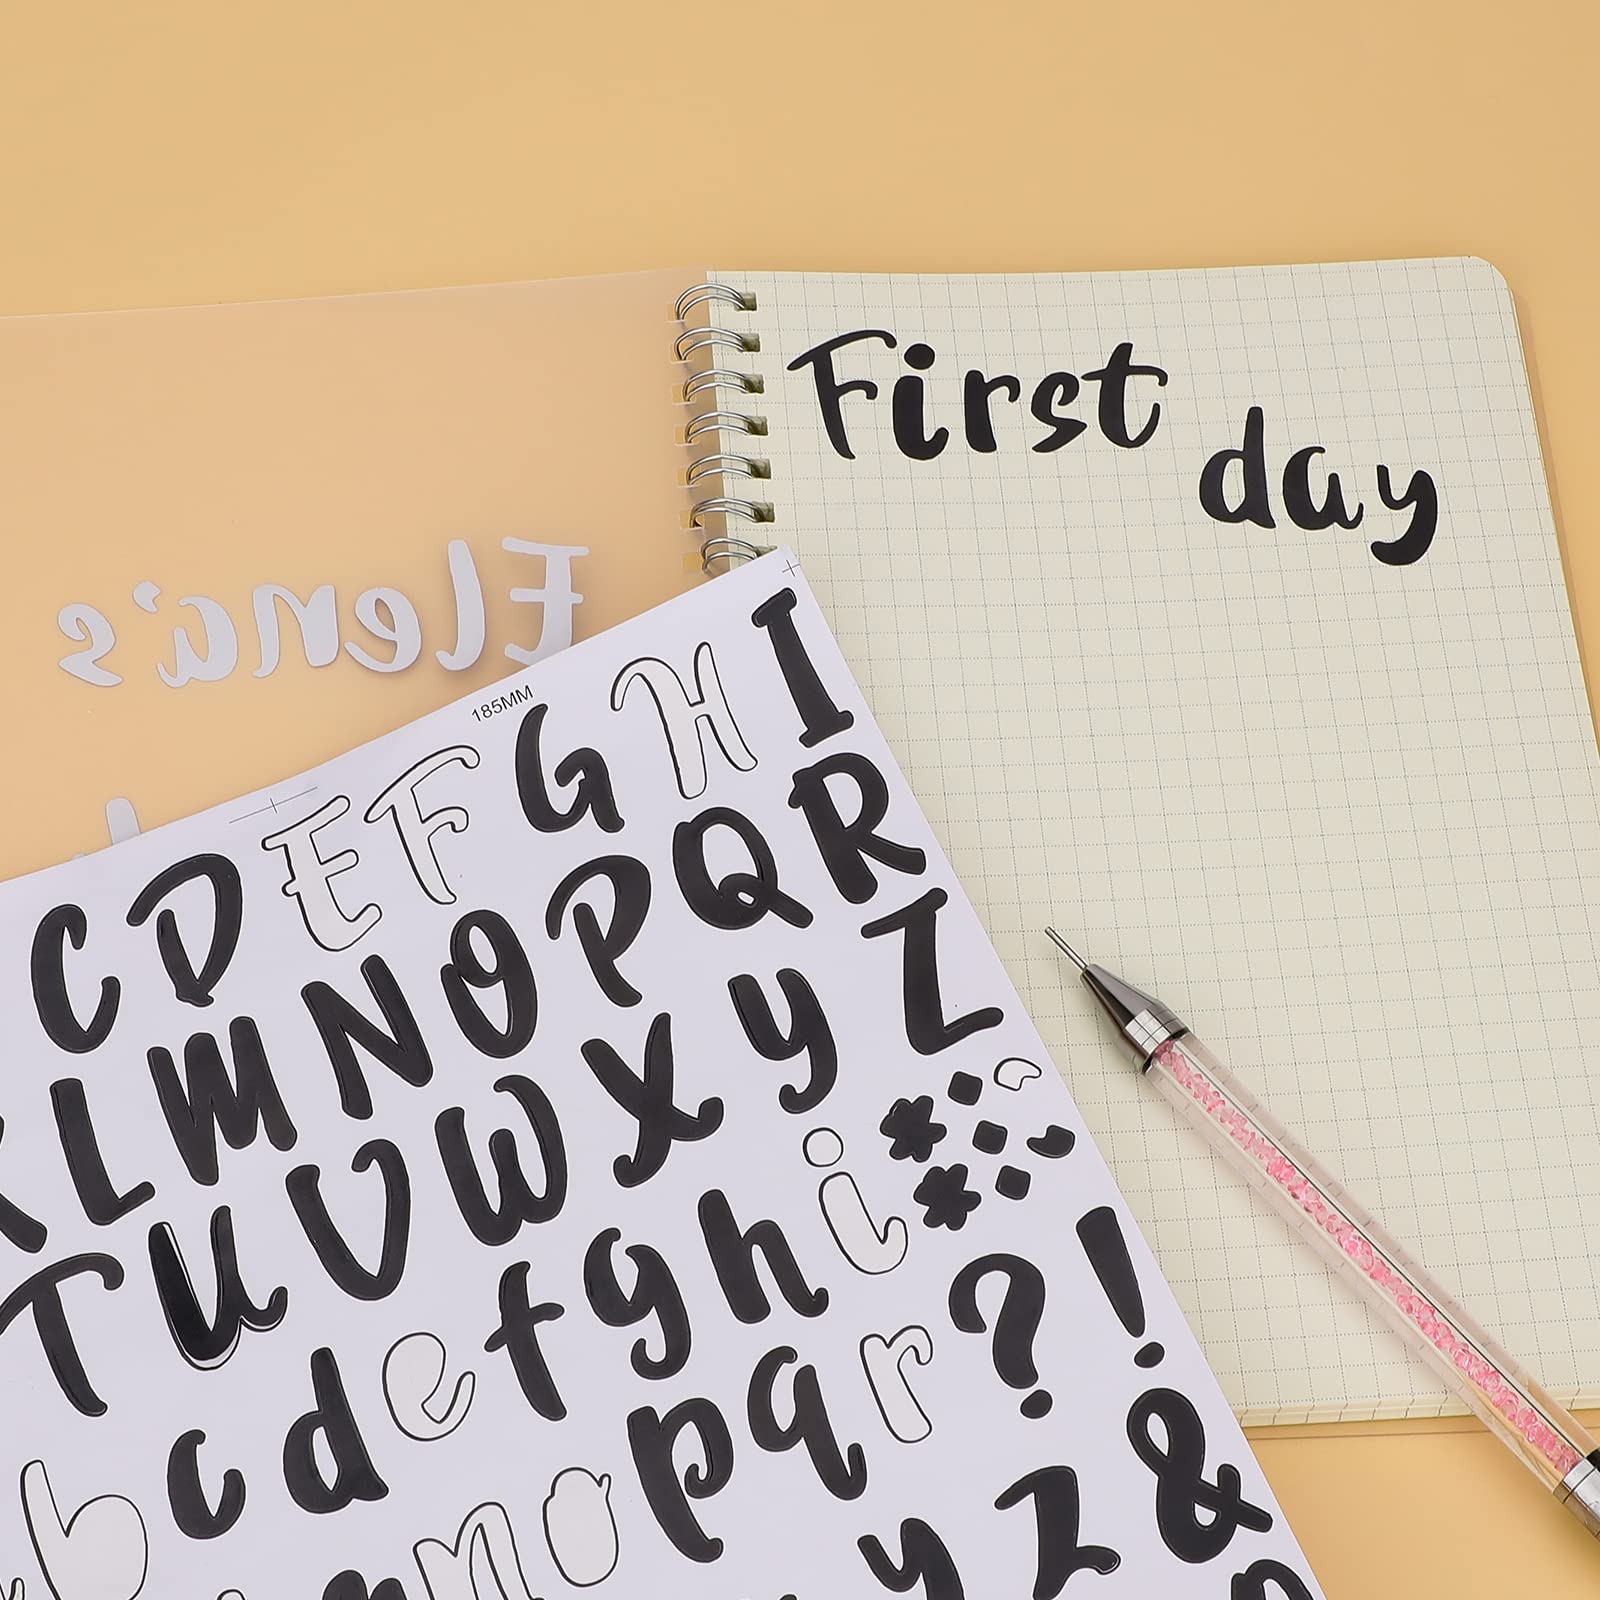 First
day
Elena's
185MM
C D E F G H I
L M N O P Q R
T U V W X Y Z
c d e f g h i ? !
b n o p q r &
y z